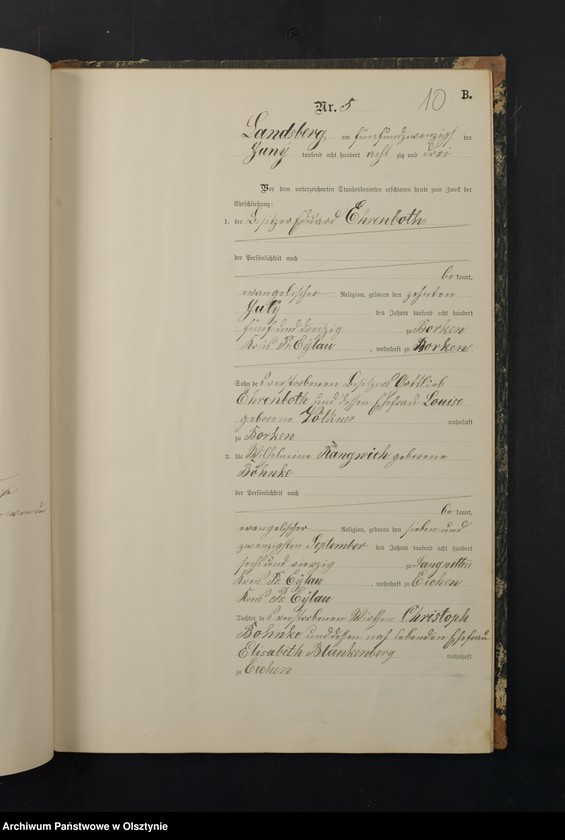 B.
Nr. 5
10
Landsberg, am fünfundzwanzigsten
Juny tausend acht hundert acht zig und drei
Vor dem unterzeichneten Standesbeamten erschienen heute zum Zweck der
Eheschließung:
1. der Besitzer Eduard Ehrenboth
der Persönlichkeit nach
be kannt,
evangelischer Religion, geboren den zehnten
July des Jahres tausend acht hundert
fünf und dreißig zu Borken
Kreis Pr. Eylau, wohnhaft zu Borken
Sohn des verstorbenen Besitzers Gottlieb
Ehrenboth und dessen Ehefrau Louise
geborene wohnhaft
zu Borken
2. die Wilhelmine Rangwich geborene
Böhnke
der Persönlichkeit nach
be kannt,
evangelischer Religion, geboren den sieben und
zwanzigsten September des Jahres tausend acht hundert
sechs und vierzig zu
Kreis Pr. Eylau, wohnhaft zu Eichen
Kreis Pr. Eylau
Tochter des verstorbenen Wirthen Christoph
Böhnke und dessen noch lebenden Ehefrau
Elisabeth Blankenberg wohnhaft
zu Eichen
Archiwum Państwowe w Olsztynie